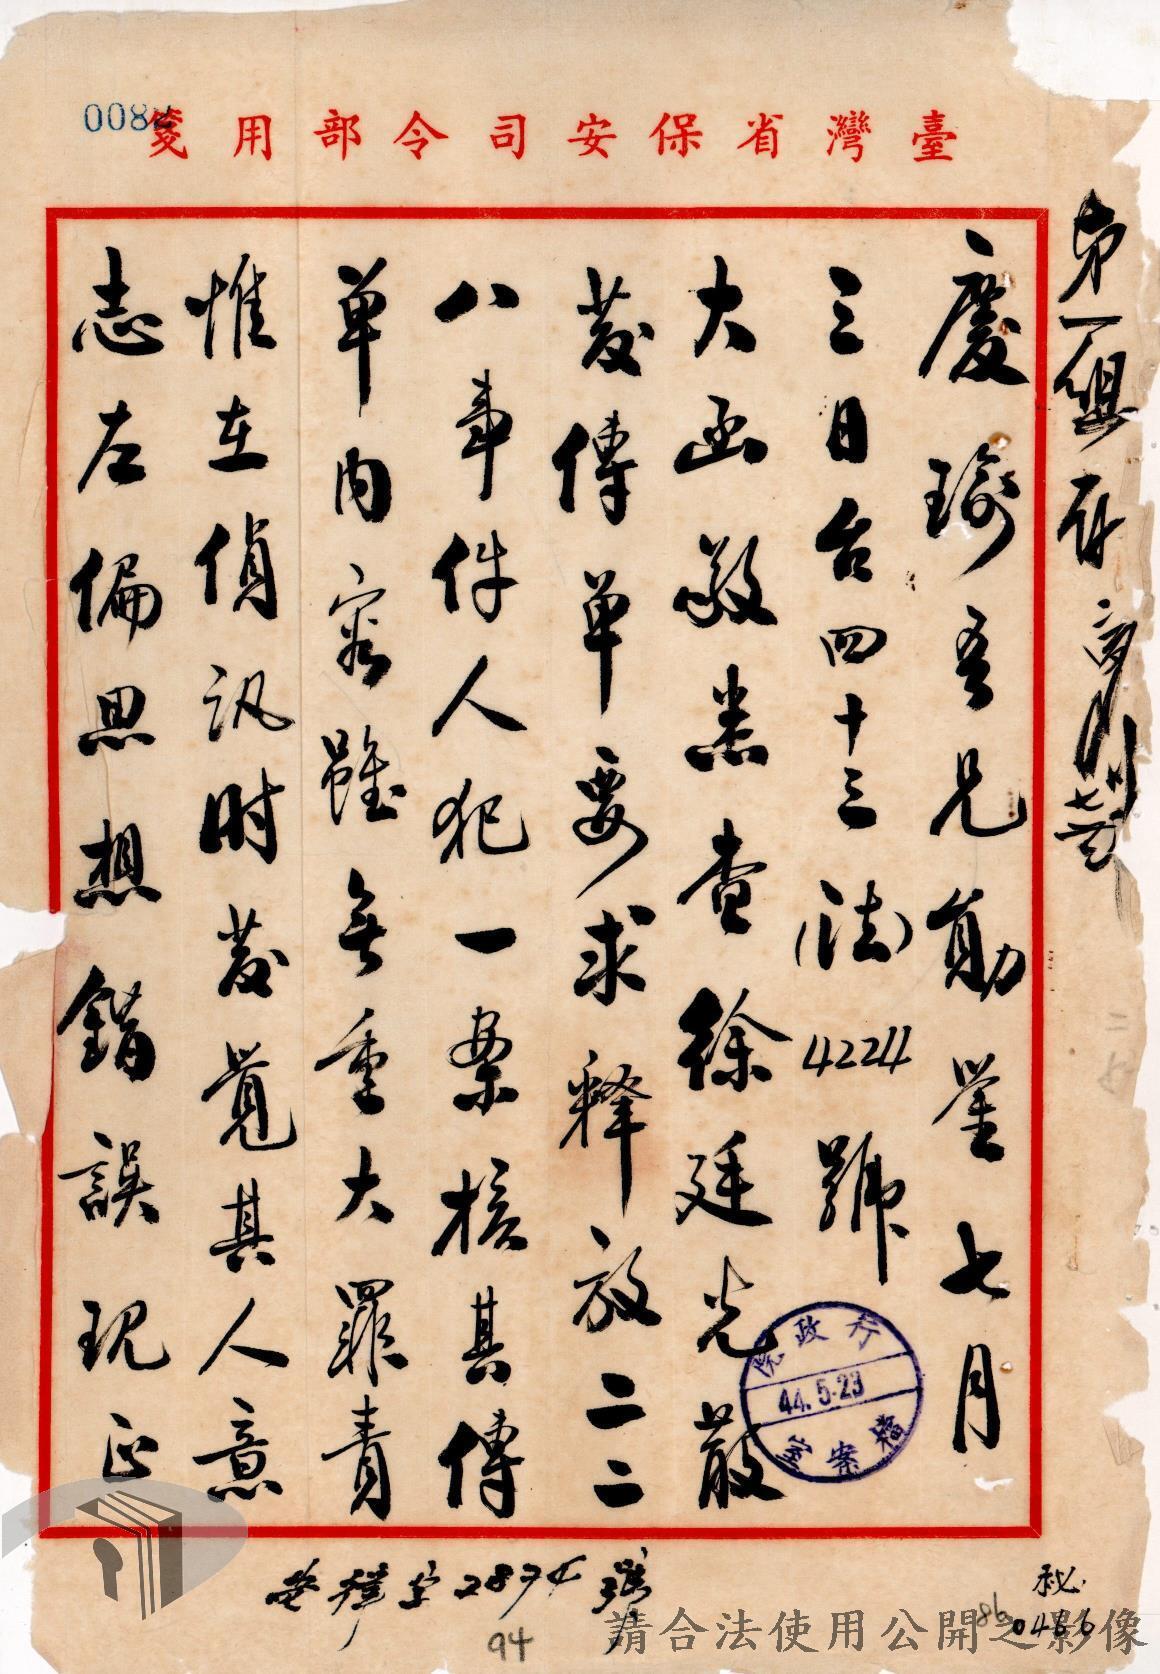 臺灣省保安司令部用箋
慶瑜吾兄勛鑒七月
三日台四十三(法)4224號
大函敬悉查徐廷光散
發傳單要求釋放二二
八事件人犯一案核其傳
單內容雖無重大罪責
惟在偵訊時發覺其人意
志左傾思想錯誤現正
行政院
44.5.23
檔案室
字2874號
94
秘
0486
86
請合法使用公開之影像